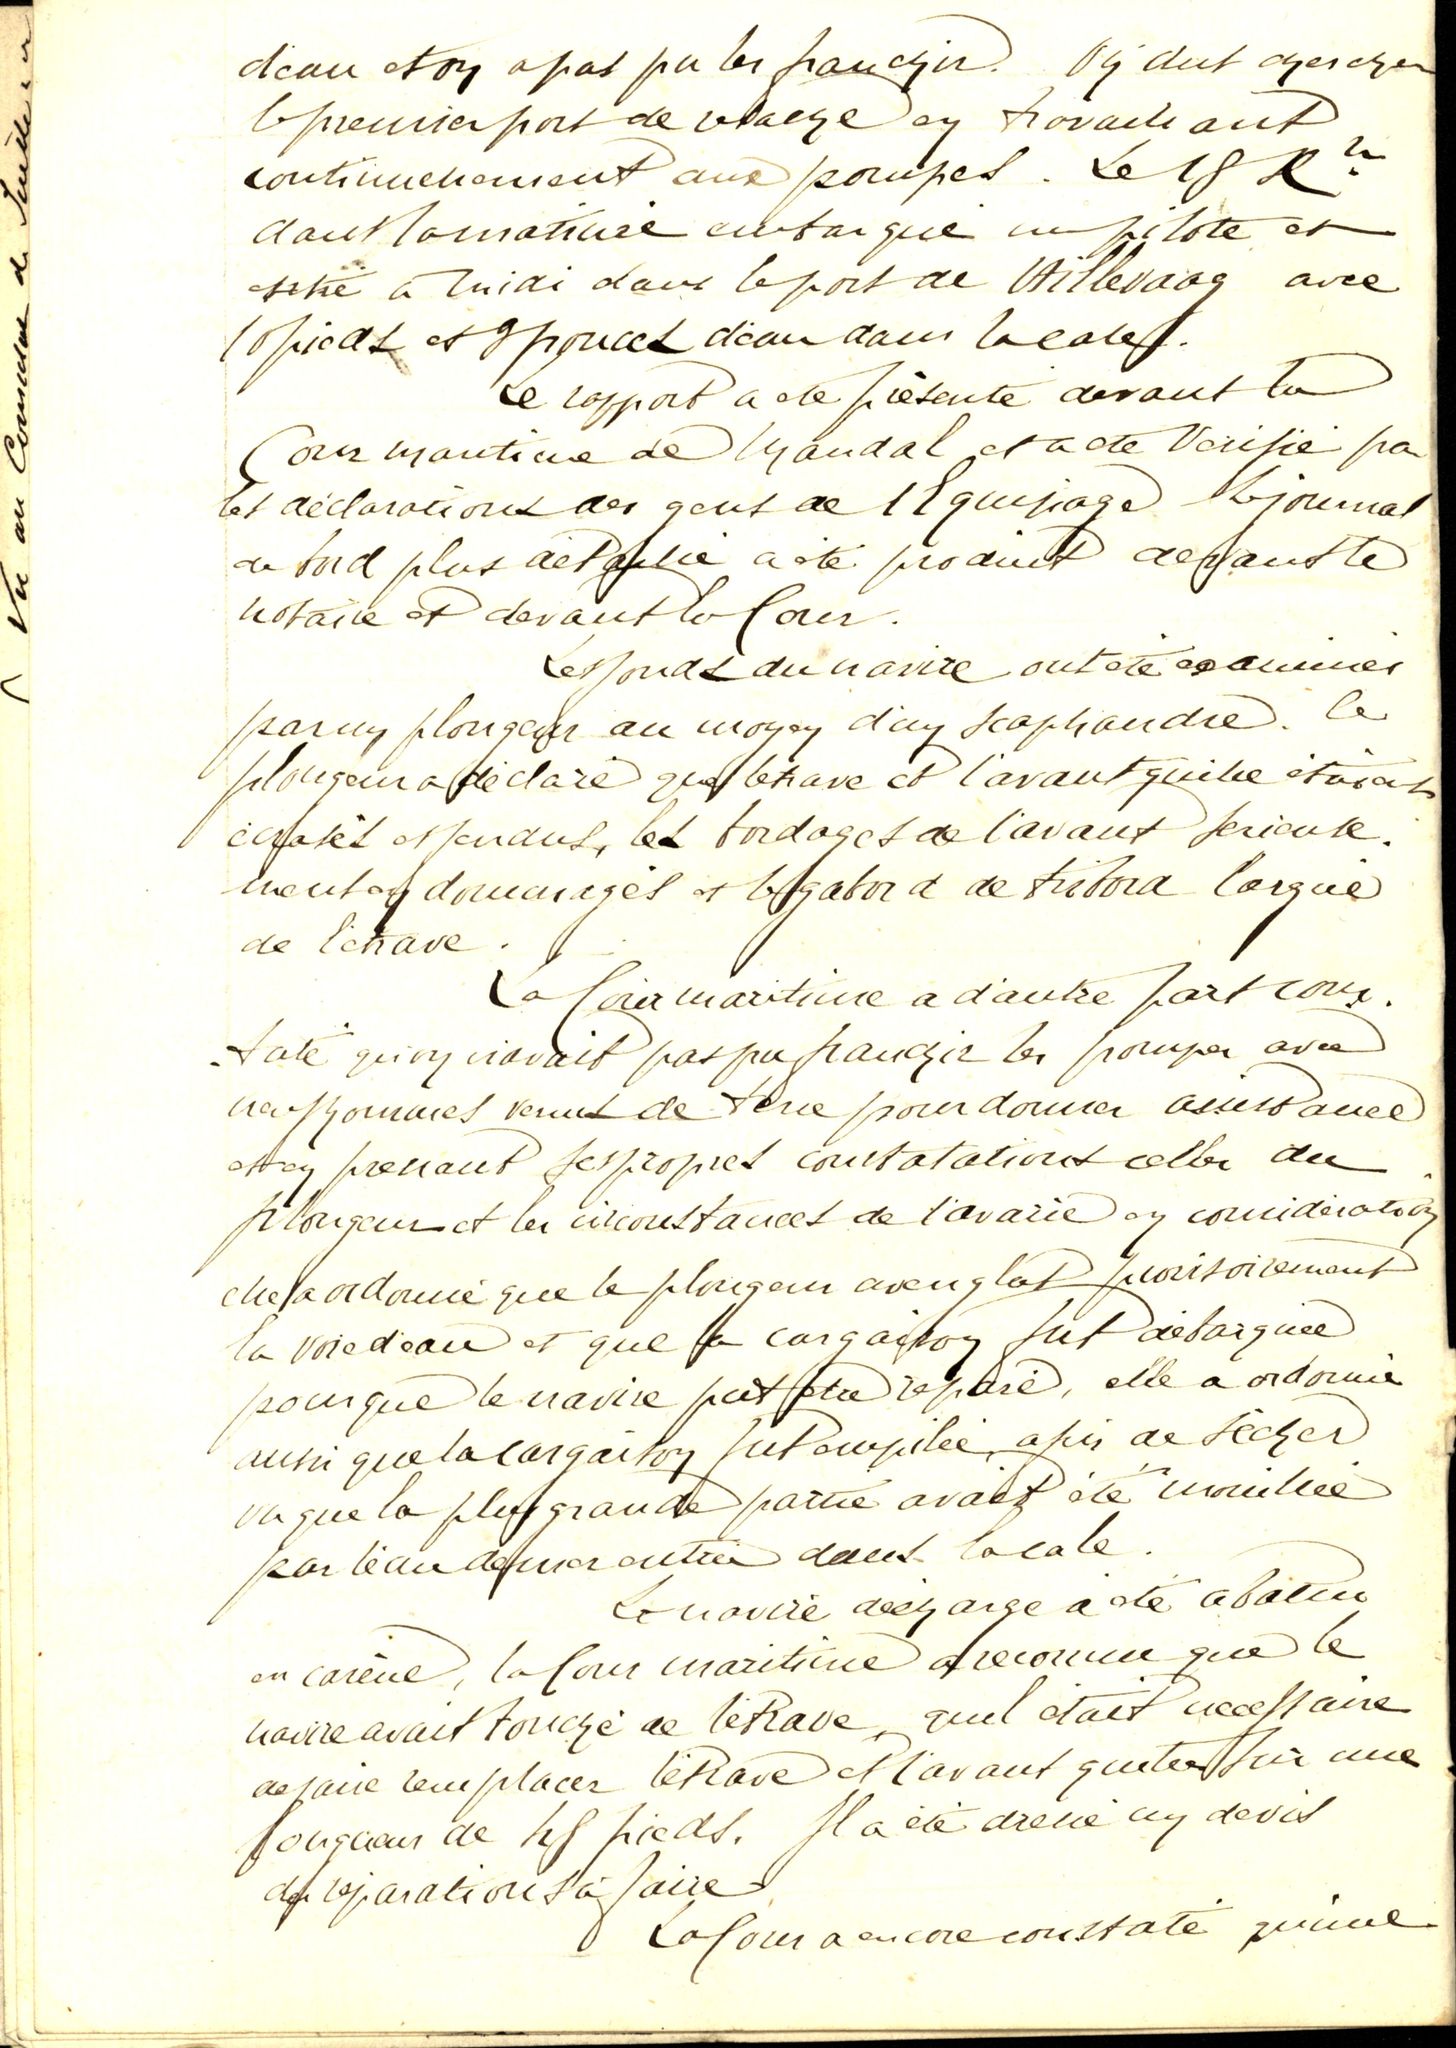 d'eau et on a pas pu les franchir. On dut chercher
le premier port de relache en travaillant
continuellement aux pompes. Le 18 Xre
dans la matinée embarqué un pilote et
entré à midi dans le port de Hillevaag avec
10 pieds et 9 pouces d'eau dans la cale.
Le rapport a été présenté devant la
Cour maritime de Mandal et a été vérifié par
les déclarations des gens de l'Equipage le journal
de bord plus détaillé a été produit devant le
notaire et devant la Cour.
Les fonds du navire ont été examinés
par un plongeur au moyen d'un scaphandre. Le
plongeur a déclaré que létrave et l'avant quille étaient
écrasés et fendus, les bordages de l'avant sérieuse-
ment endommagés et le gabord de tribord largué
de l'étrave.
La Cour maritime a d'autre part cons-
-taté qu'on n'avait pas pu franchir les pompes avec
neuf hommes venus de terre pour donner assistance
et en prenant ses propres constatations celles du
plongeur et les circonstances de l'avarie en considération
elle a ordonné que le plongeur aveuglat provisoirement
la voie d'eau et que la cargaison fut débarquée
pour que le navire put être réparé, elle a ordonné
aussi que la cargaison fut empilée, afin de sécher
vu que la plus grande partie avait été mouillée
par l'eau de mer entrée dans la cale.
Le navire déchargé a été abattu
en carène, la Cour maritime a reconnu que le
navire avait touché de l'étrave, qu'il était nécessaire
de faire remplacer l'étrave et l'avant quille sur une
longueur de 48 pieds. Il a été dressé un devis
des réparations à faire
La Cour a encore constaté qu'une
Vu au Consulat de